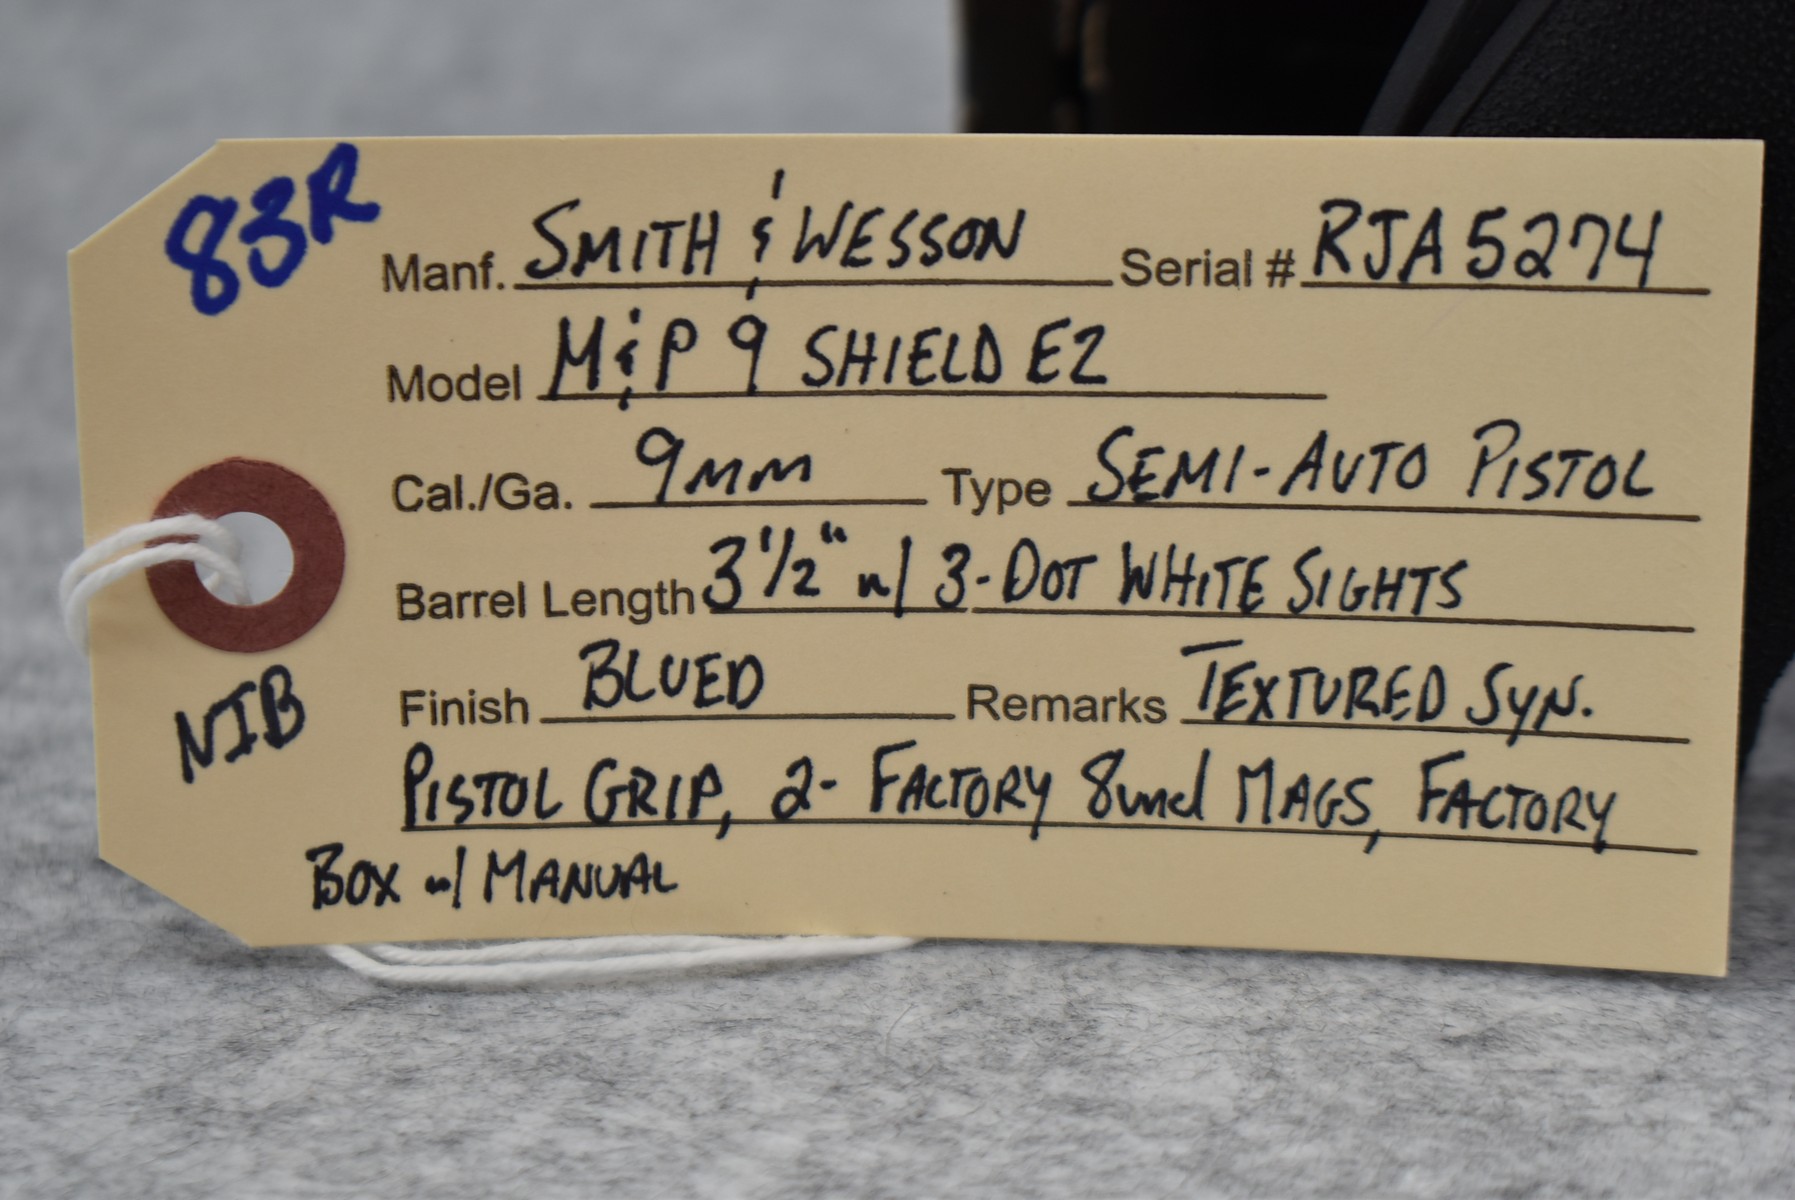 83R
Manf. SMITH & WESSON Serial # RJA5274
Model M&P 9 SHIELD EZ
Cal./Ga. 9mm Type SEMI-AUTO PISTOL
Barrel Length 3 1/2" w/ 3-DOT WHITE SIGHTS
Finish BLUED Remarks TEXTURED SYN.
NIB
PISTOL GRIP, 2- FACTORY 8rnd MAGS, FACTORY
BOX w/ MANUAL